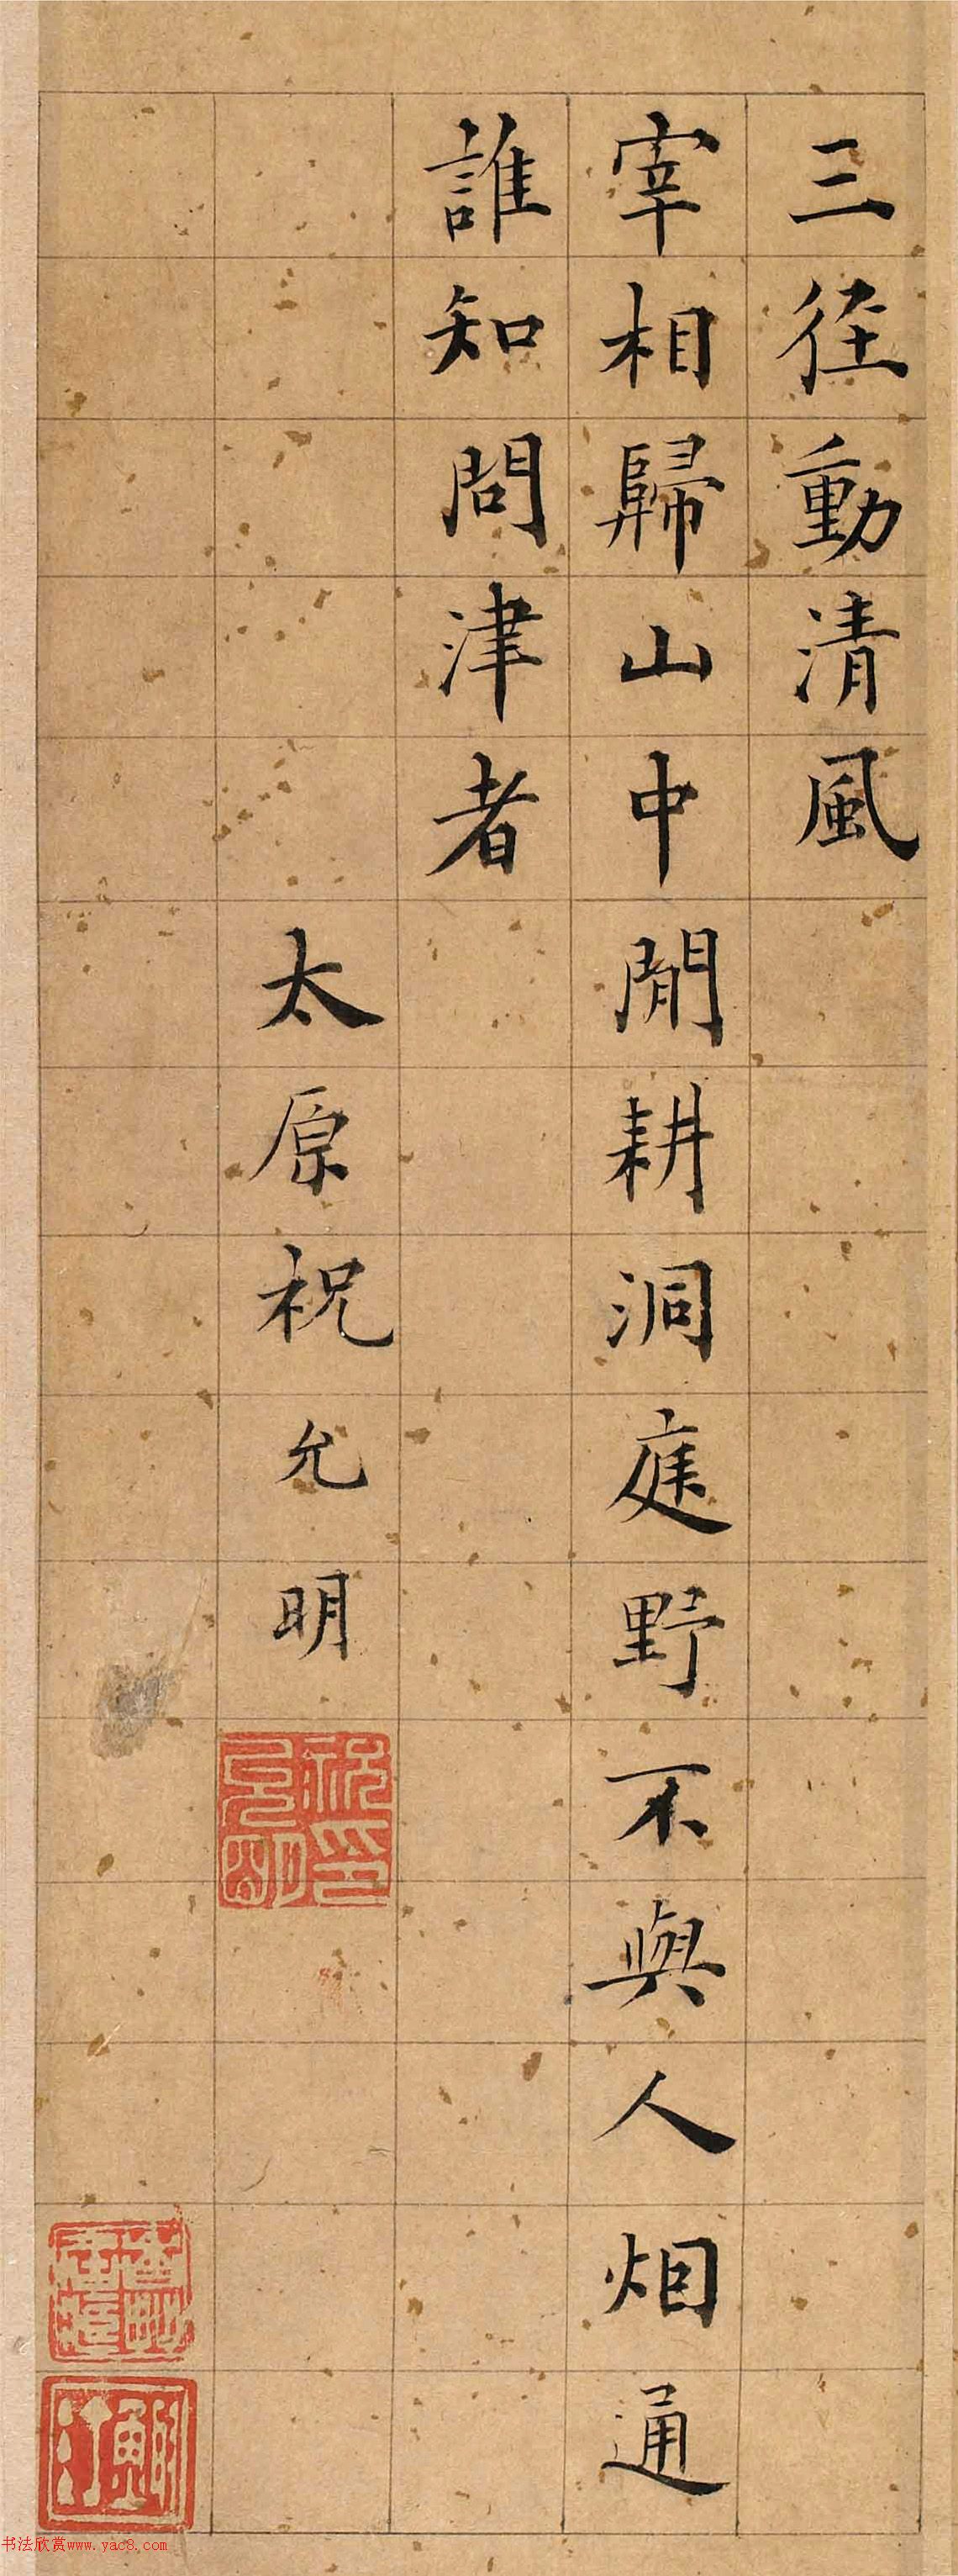 三徑動清風
宰相歸山中閒耕洞庭野不與人烟通
誰知問津者
太原祝允明
祝允明印
书法欣赏www.yac8.com